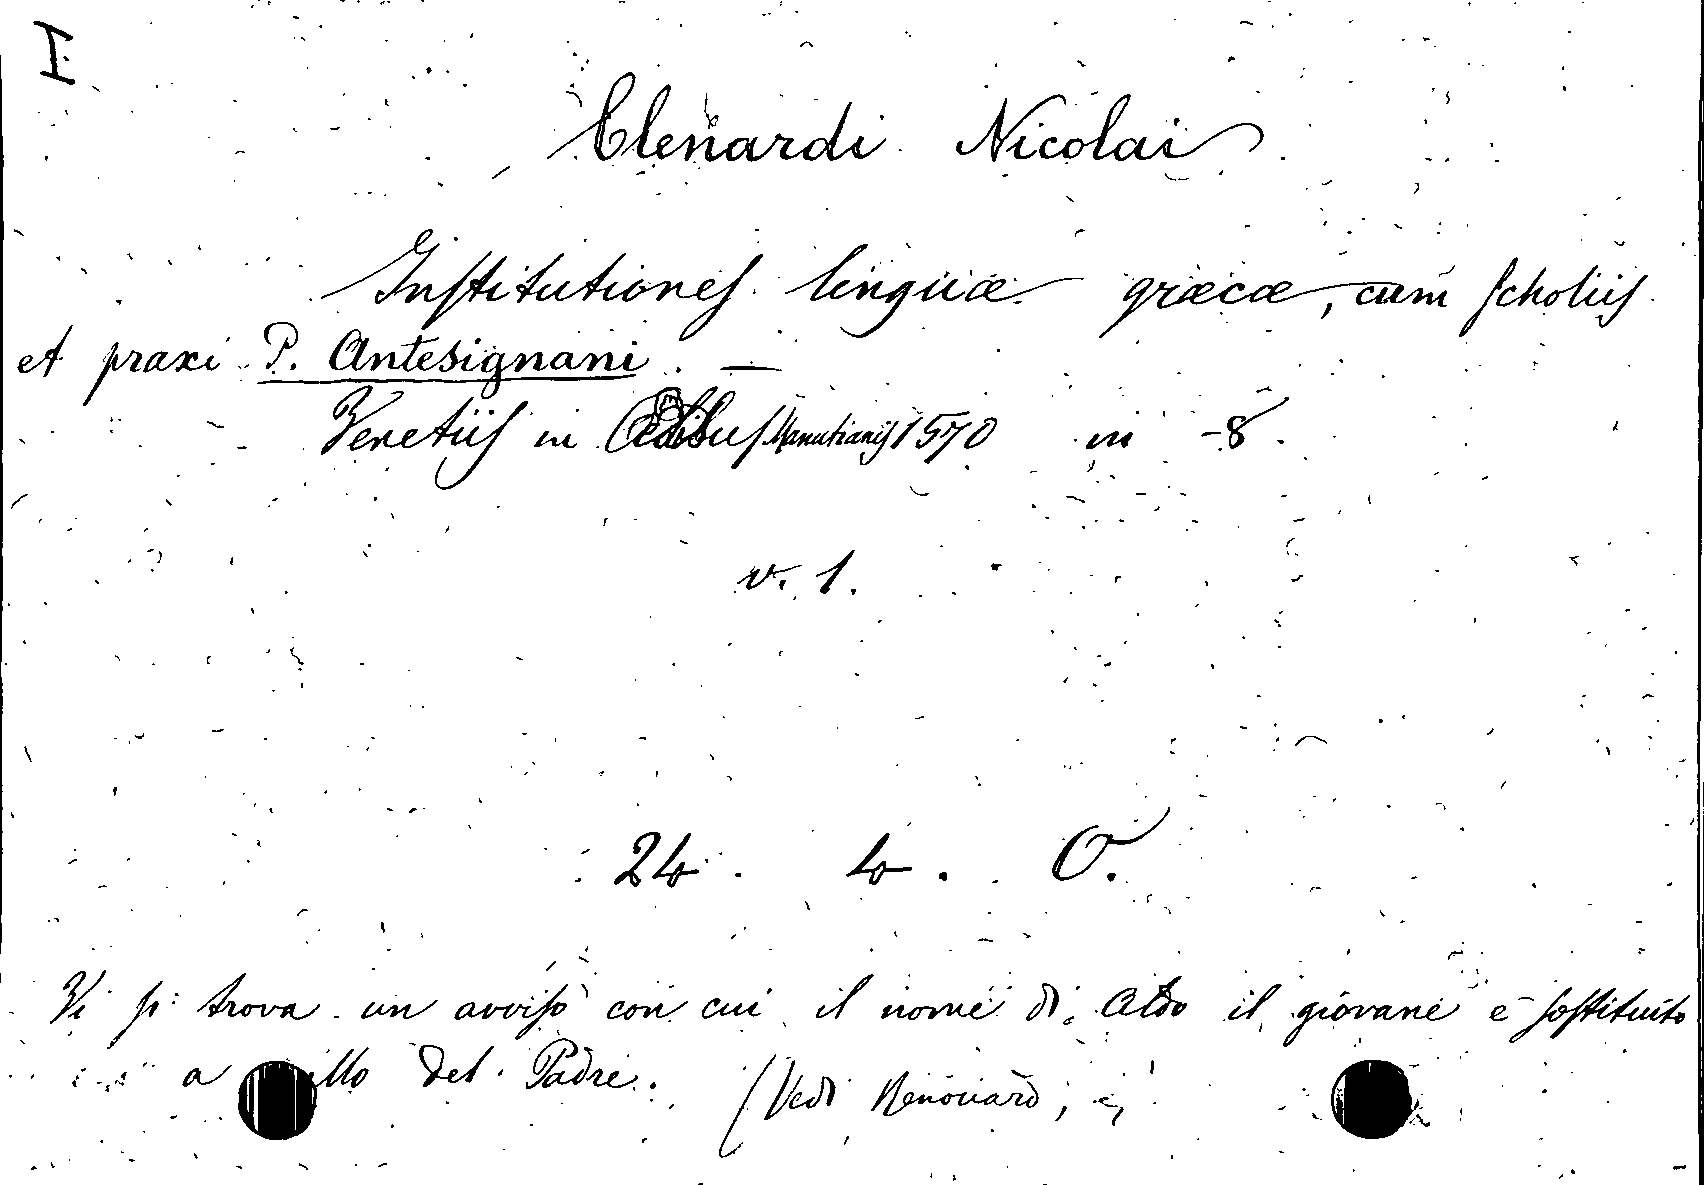 I
Clenardi Nicolai
Institutiones linguæ græcæ, cum scholiis
et praxi P. Antesignani. —
Venetiis in Ædibus Manutianis 1570 in -8.
v. 1.
24. 4. O.
Vi si trova un avviso con cui il nome di Aldo il giovane è sostituito
a illo del Padre. (Vedi Renouard,